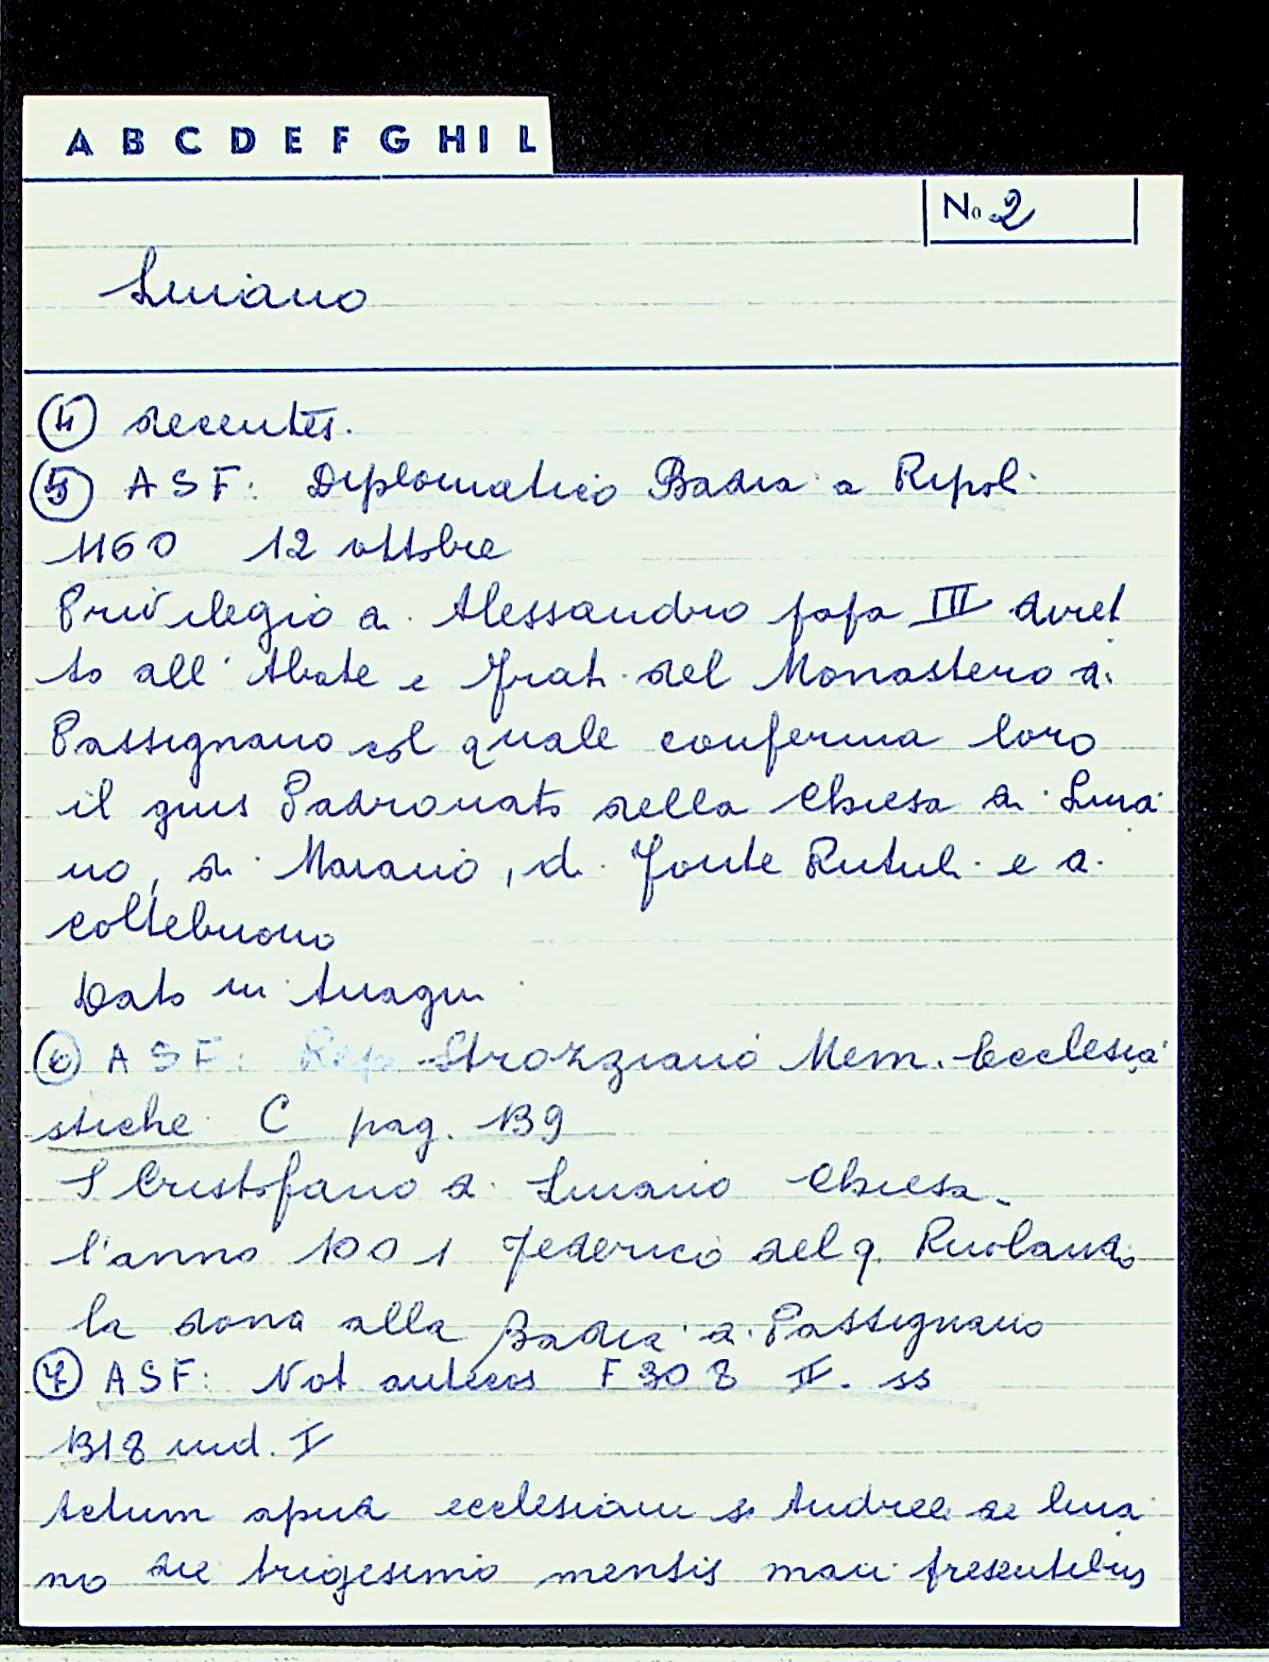 A B C D E F G H I L
No 2
Luiano
④ decentes.
⑤ ASF: Diplomatico Badia a Ripoli
1160 12 ottobre
Privilegio di Alessandro papa III diret
to all'Abate e Frati del Monastero di
Passignano col quale conferma loro
il gius Padronato della Chiesa di Luia
no, di Marano, di Fonte Rutuli e di
coltebuono
Dato in Anagni
⑥ ASF: Rep Strozziano Mem. Ecclesia
stiche C pag. 139
S Cristofano a Luiano Chiesa
l'anno 1001 Federico del q. Ruolando
la dona alla Badia di Passignano
⑦ ASF: Not antecos F 308 II. ss
1318 ind. I
Actum apud ecclesiam s. Andree de luia
no die trigesimo mensis maii presentibus